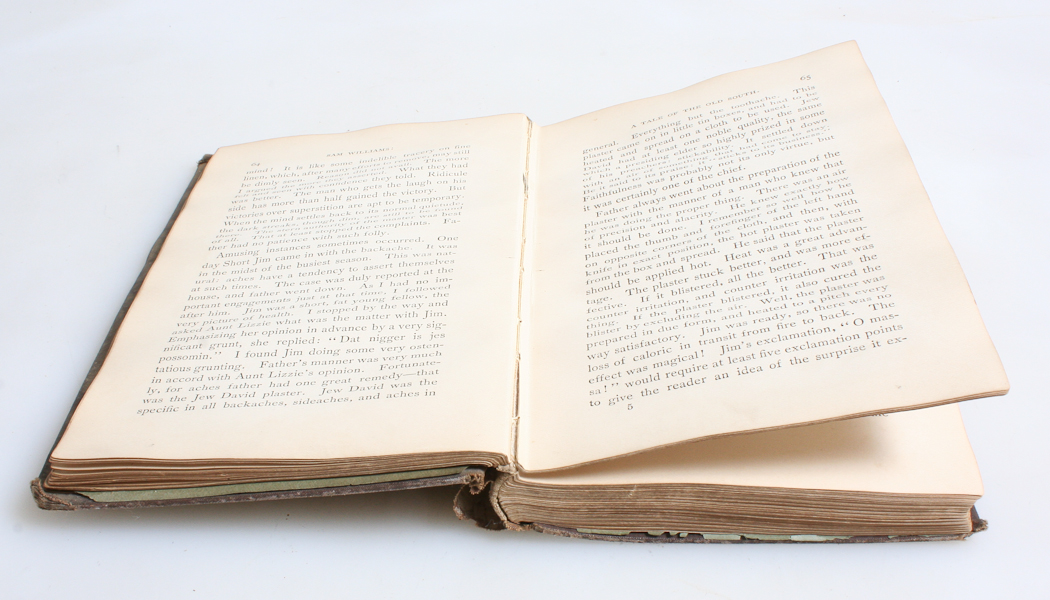 64 SAM WILLIAMS:
mind! It is like some indelible water on fine
linen which, after many
be dimly seen. The more
they told. What they had
was better. The man who gets the laugh on his
side has more than half gained the victory. But
victories over superstition are apt to be temporary.
When the mind settles back to its normal
the dark streaks
of all. stopped the complaints. Fa-
ther had no patience with such folly.
Amusing instances sometimes occurred. One
day Short Jim came in with the backache. It was
in the midst of the busiest season. This was nat-
ural: aches have a tendency to assert themselves
at such times. The case was duly reported at the
house, and father went down. As I had no im-
portant engagements just at that time, I followed
after him. Jim was a short, fat young fellow, the
very picture of health. I stopped by the way and
asked Aunt Lizzie what was the matter with Jim.
Emphasizing her opinion in advance by a very sig-
nificant grunt, she replied: "Dat nigger is jes
possomin." I found Jim doing some very osten-
tatious grunting. Father's manner was very much
in accord with Aunt Lizzie's opinion. Fortunate-
ly, for aches father had one great remedy—that
was the Jew David plaster. Jew David was the
specific in all backaches, sideaches, and aches in
A TALE OF THE OLD SOUTH. 65
general. Everything but the toothache. This
plaster came in little tin boxes, and had to be
heated and spread on a cloth to be used. Jew
David had at least one noble quality, the same
with a
in
Faithfulness was probably not its only virtue, but
it was certainly one of the chief.
Father always went about the preparation of the
plaster with the manner of a man who knew that
he was doing the proper thing. There was an air
of precision and alacrity. He knew exactly how
it should be done. I remember so well how he
placed the thumb and forefinger of the left hand
on opposite corners of the cloth, and then, with
knife in exact position, the hot plaster was taken
from the box and spread. He said that the plaster
should be applied hot. Heat was a great advan-
tage. The plaster stuck better, and was more ef-
fective. If it blistered, all the better. That was
counter irritation, and counter irritation was the
thing. If the plaster blistered, it also cured the
blister by excluding the air. Well, the plaster was
prepared in due form, and heated to a pitch every
way satisfactory. Jim was ready, so there was no
loss of caloric in transit from fire to back. The
effect was magical! Jim's exclamation, "O mas-
sa!" would require at least five exclamation points
to give the reader an idea of the surprise it ex-
5